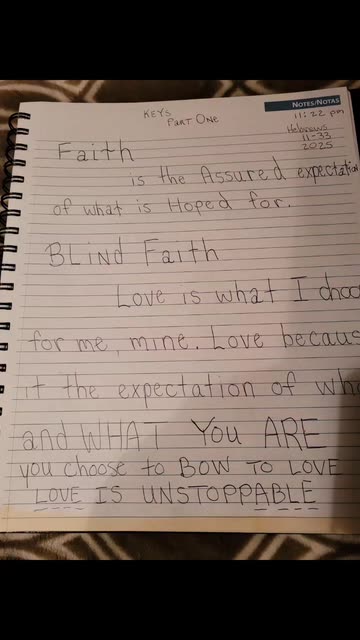 NOTES/NOTAS
KEYS
PART ONE
11:22 pm
Hebrews
11-33
2025
Faith
is the Assured expectation
of what is Hoped for.
BLind Faith
Love is what I
for me, mine. Love
it the expectation of
and WHAT YOU ARE
you choose to BOW TO LOVE
LOVE IS UNSTOPPABLE